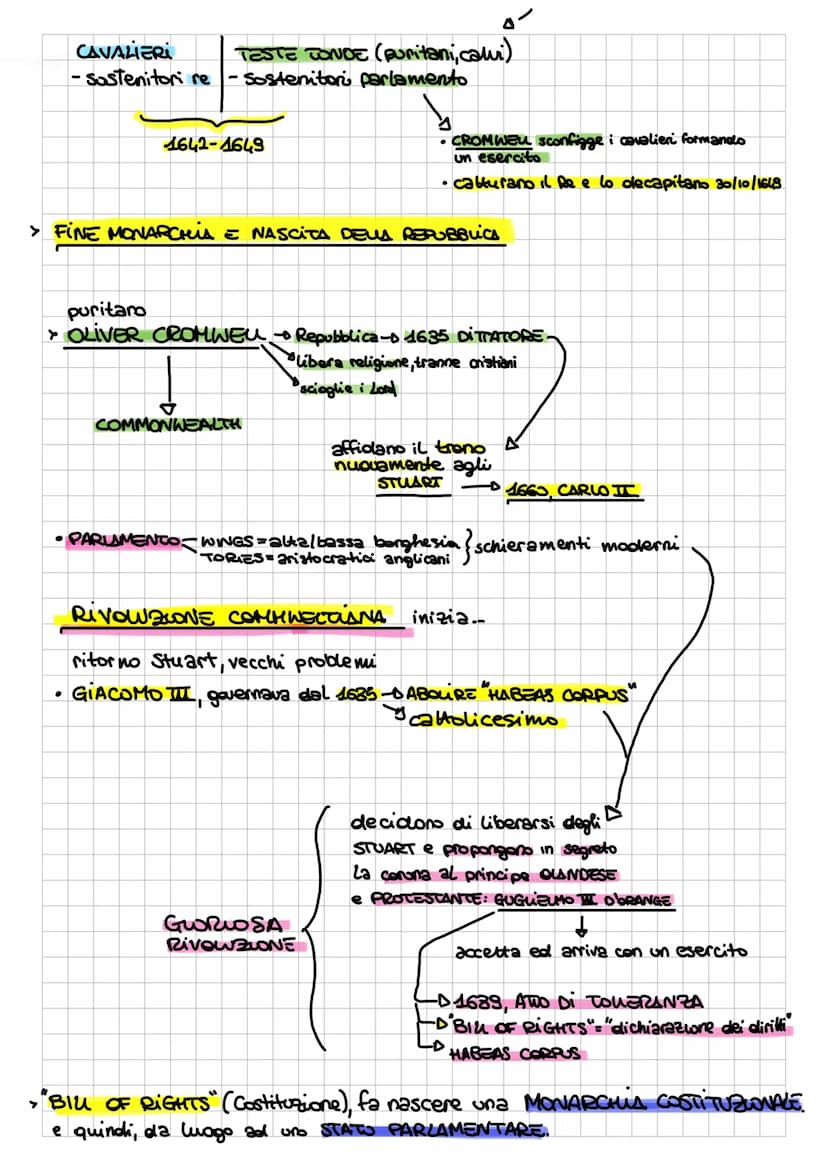 CAVALIERI
- sostenitori re
TESTE TONDE (puritani, calvi)
- sostenitori parlamento
1642-1649
• CROMWELL sconfigge i cavalieri formando
un esercito
• catturano il Re e lo decapitano 30/10/1649
> FINE MONARCHIA E NASCITA DELLA REPUBBLICA
puritaro
> OLIVER CROMWELL → Repubblica → 1635 DITTATORE
libera religione, tranne cristiani
scioglie i Lord
COMMONWEALTH
affidano il trono
nuovamente agli
STUART → 1660, CARLO II
• PARLAMENTO WINGS = alta/bassa borghesia } schieramenti moderni
TORIES = aristocratici anglicani
RIVOLUZIONE inizia...
ritorno Stuart, vecchi problemi
• GIACOMO III, governava dal 1685 → ABOLIRE "HABEAS CORPUS"
cattolicesimo
decidono di liberarsi degli
STUART e propongono in segreto
la corona al principe OLANDESE
e PROTESTANTE: GUGLIELMO III D'ORANGE
GLORIOSA
RIVOLUZIONE
accetta ed arriva con un esercito
→ 1689, ATTO DI TOLLERANZA
→ "BILL OF RIGHTS" = "dichiarazione dei diritti"
→ HABEAS CORPUS
> "BILL OF RIGHTS" (Costituzione), fa nascere una MONARCHIA COSTITUZIONALE
e quindi, da luogo ad uno STATO PARLAMENTARE.